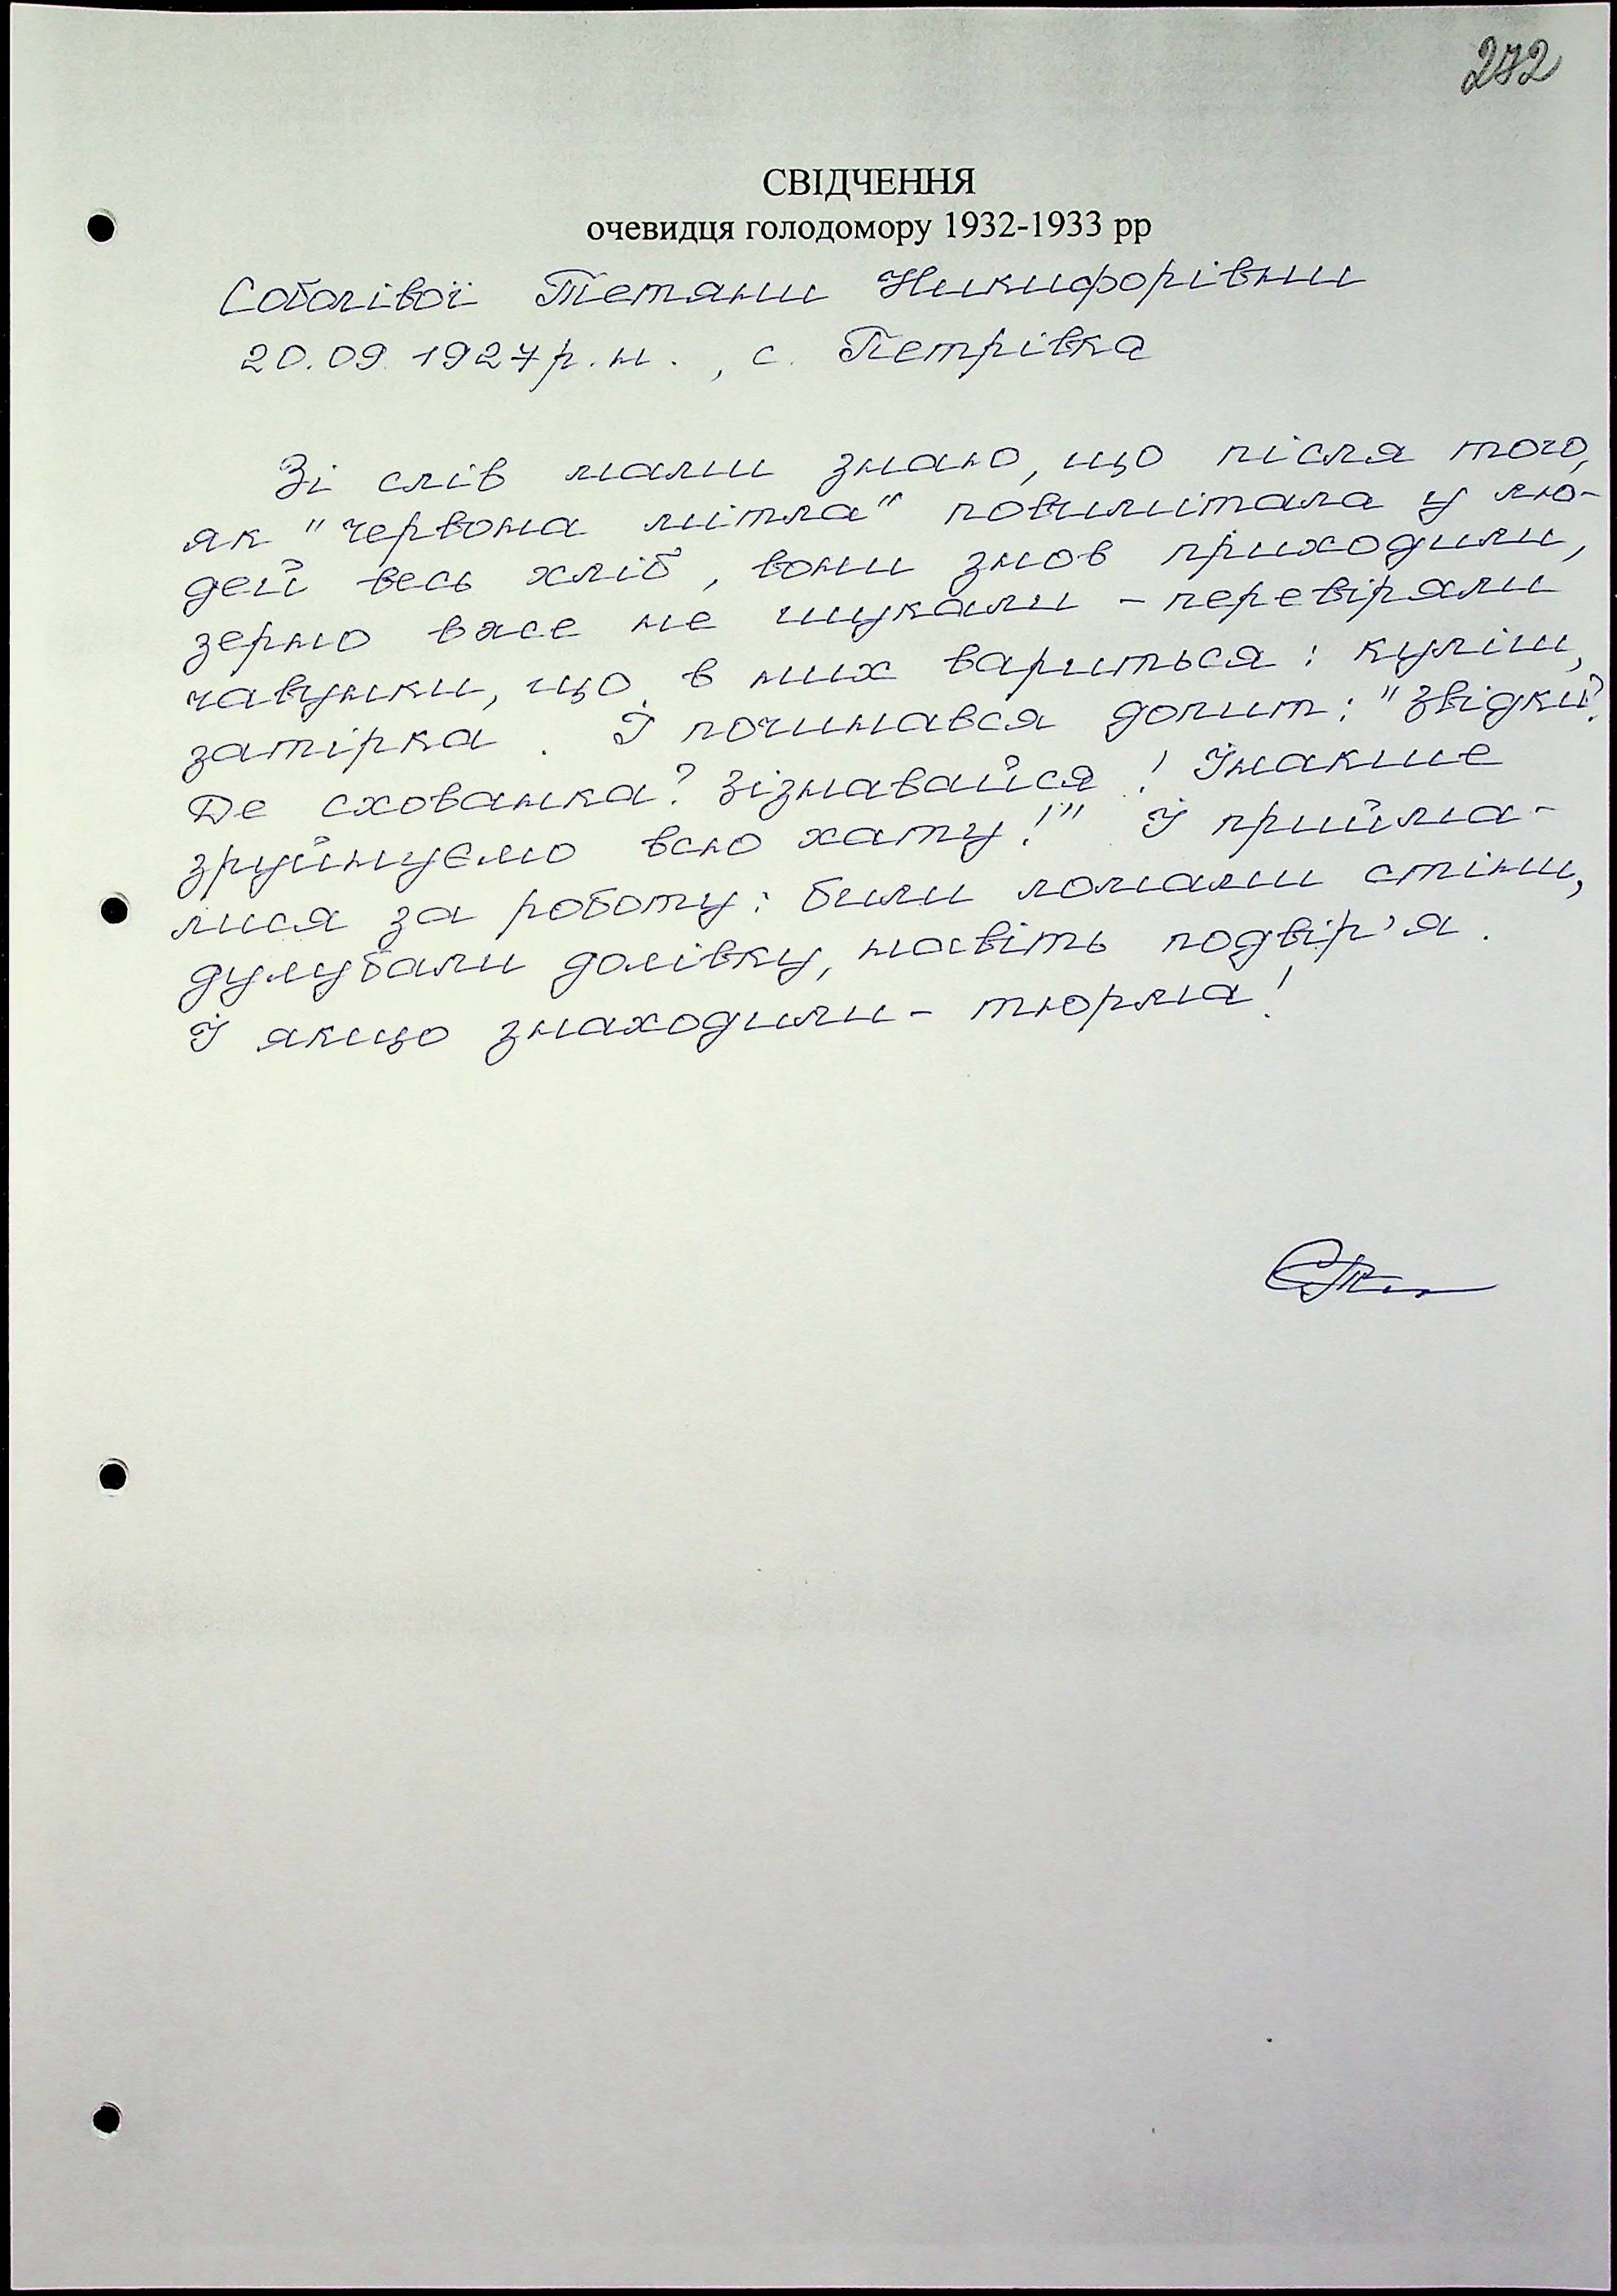 272
СВІДЧЕННЯ
очевидця голодомору 1932-1933 рр
Соболівої Тетяни Никифорівни
20.09.1927р.н., с. Петрівка
Зі слів мами знаю, що після того,
як "червона мітла" повимітала у лю-
дей весь хліб, вони знов приходили,
зерно вже не шукали - перевіряли
чавунки, що в них вариться: куліш,
затірка. І починався допит: "Звідки?
Де схованка? Зізнавайся! Інакше
зруйнуємо всю хату!" І прийма-
лися за роботу: били ломали стіни,
дулубали долівку, навіть подвір'я.
І якщо знаходили - тюрма!